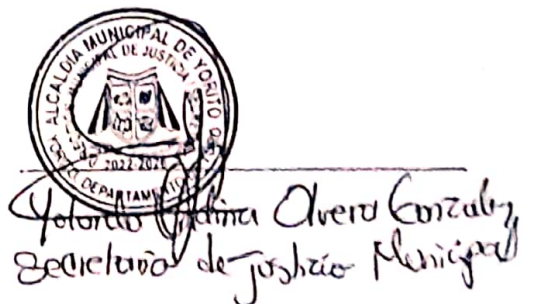 ALCALDIA MUNICIPAL DE YORITO
MUNICIPAL DE JUSTICIA
2022-2026
DEPARTAMENTO
Yolanda Olvera Gonzalez
Secretaria de Justicia Municipal